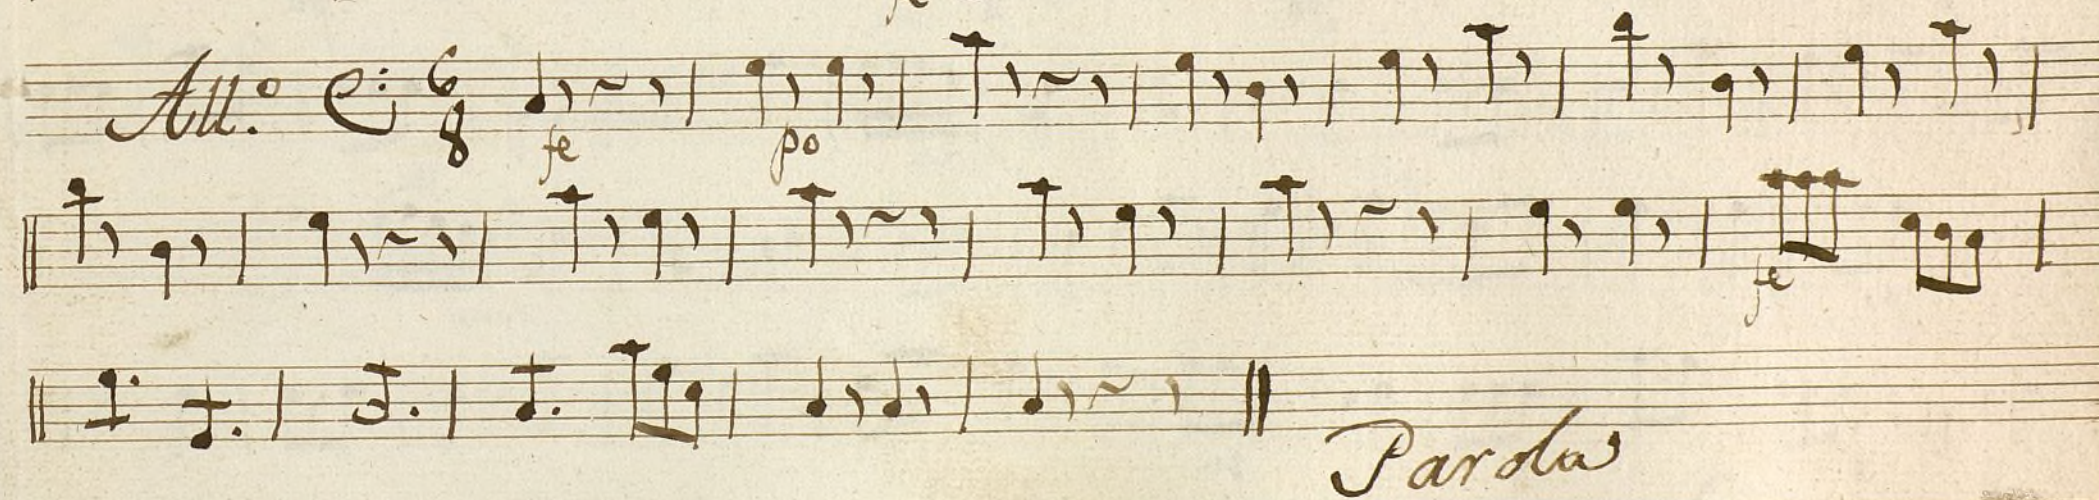 All.º 6
8
fe po
fe
Parola